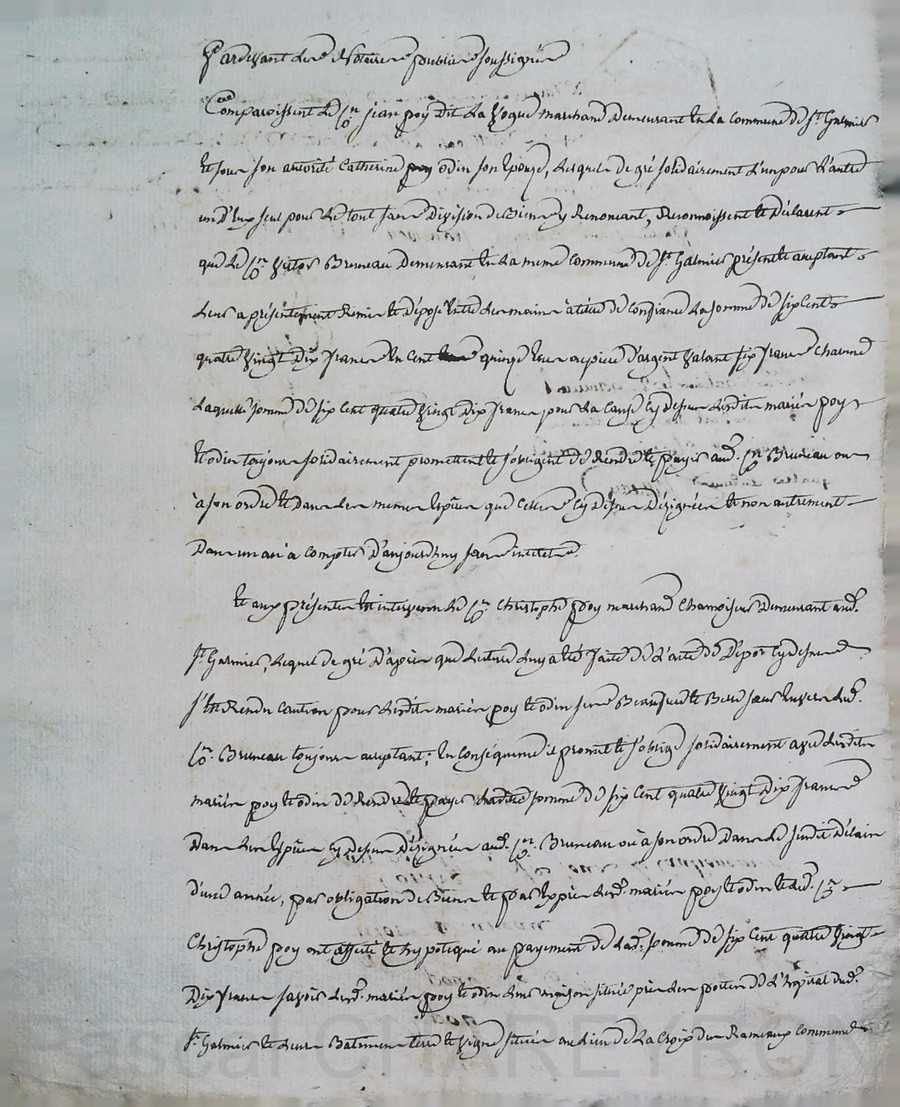 Pardevant les Notaires publics soussignés
Comparoissent le Cen jean poy dit La Vogue marchand demeurant en la commune de St Galmier
et sous son autorité Catherine odin son Epouse, lesquels de gré solidairement l'un pour l'autre
un d'Eux seul pour le tout sans division de Biens y Renonçant, Reconnoissent et déclarent
que le Cen Victor Bruneau demeurant en la meme commune de St Galmier présent et acceptant
Leurs a présentement Remis et déposé entre les mains à titre de Confiance la somme de six Cents
quatre vingt dix francs en Cent quinze Ecus ou pièces d'argent valant six francs chacune
Laquelle somme de six Cent quatre vingt dix francs pour la cause cy dessus lesdits mariés poy
et odin toujours solidairement promettent et s'obligent de Rendre et payer aud. Cen Bruneau ou
à son ordre et dans les memes Espèces que Celles cy dessus désignées et non autrement
Dans un an à compter d'aujourd'huy sans interets.
Et aux présentes est intervenu le Cen Christophe poy marchand Chamoiseur demeurant aud.
St Galmier, lequel de gré d'après que lecture luy a été faite de l'acte de Dépot cy dessus
s'est Rendu Caution pour lesdits mariés poy et odin sans Beaufice et Bere sans Envers led.
Cen Bruneau toujours acceptant; En Conséquence il promet et s'oblige solidairement avec lesdits
mariés poy et odin de Rendre et payer ladite somme de six Cent quatre vingt dix francs
Dans les Espèces cy dessus désignées aud. Cen Bruneau ou à son ordre Dans le susdit délai
d'une année, par obligation de Biens et par Exprès lesd. mariés poy et odin et led. Cen
Christophe poy ont affecté et hypotequé au payement de lad. somme de six Cent quatre vingt
Dix francs savoir lesd. mariés poy et odin leurs maison située près les portes de l'hopital dud.
St Galmier et leurs Batimens terre et vigne située au lieu de la Croix des Rameaux Commune